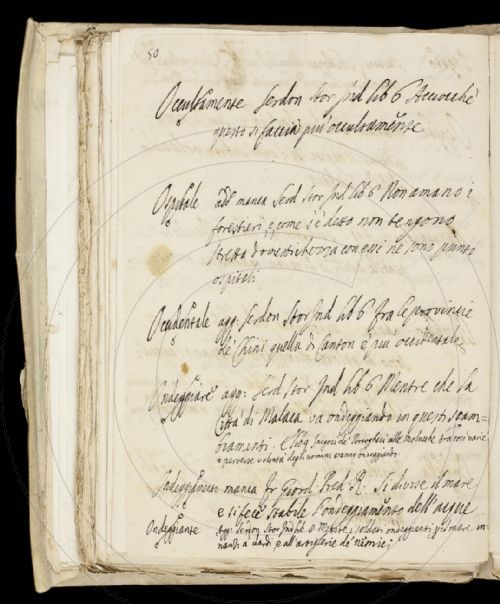 50
Occultamente Serdon Stor Ind lib 6 Acciocchè
questo si faccia più occultamente
Ospitale add manca Serd Stor Ind lib 6 Non amano i
forestieri, e come s'è detto non tengono
stretta domestichezza con essi ne sono punto
ospitali
Occidentale agg: Serdon Stor Ind lib 6 fra le provincie
de Chini quella di Canton è più occidentale
Ondeggiare agg: Serd Stor Ind lib 6 Mentre che la
Città di Malaca va ondeggiando in questi scam=
biamenti. E lib 9 negozi de Portoghesi alle Moluche
e perverse volontà degli uomini erano ondeggianti
Ondeggiamento manca Fr Giord Pred R. Si divise il mare
e si fece stabile l'ondeggiamento dell'acque
Ondeggiante agg: Serdon Stor Ind lib soldati ondeggianti
nanti a dardi e all'artiglierie de nemici